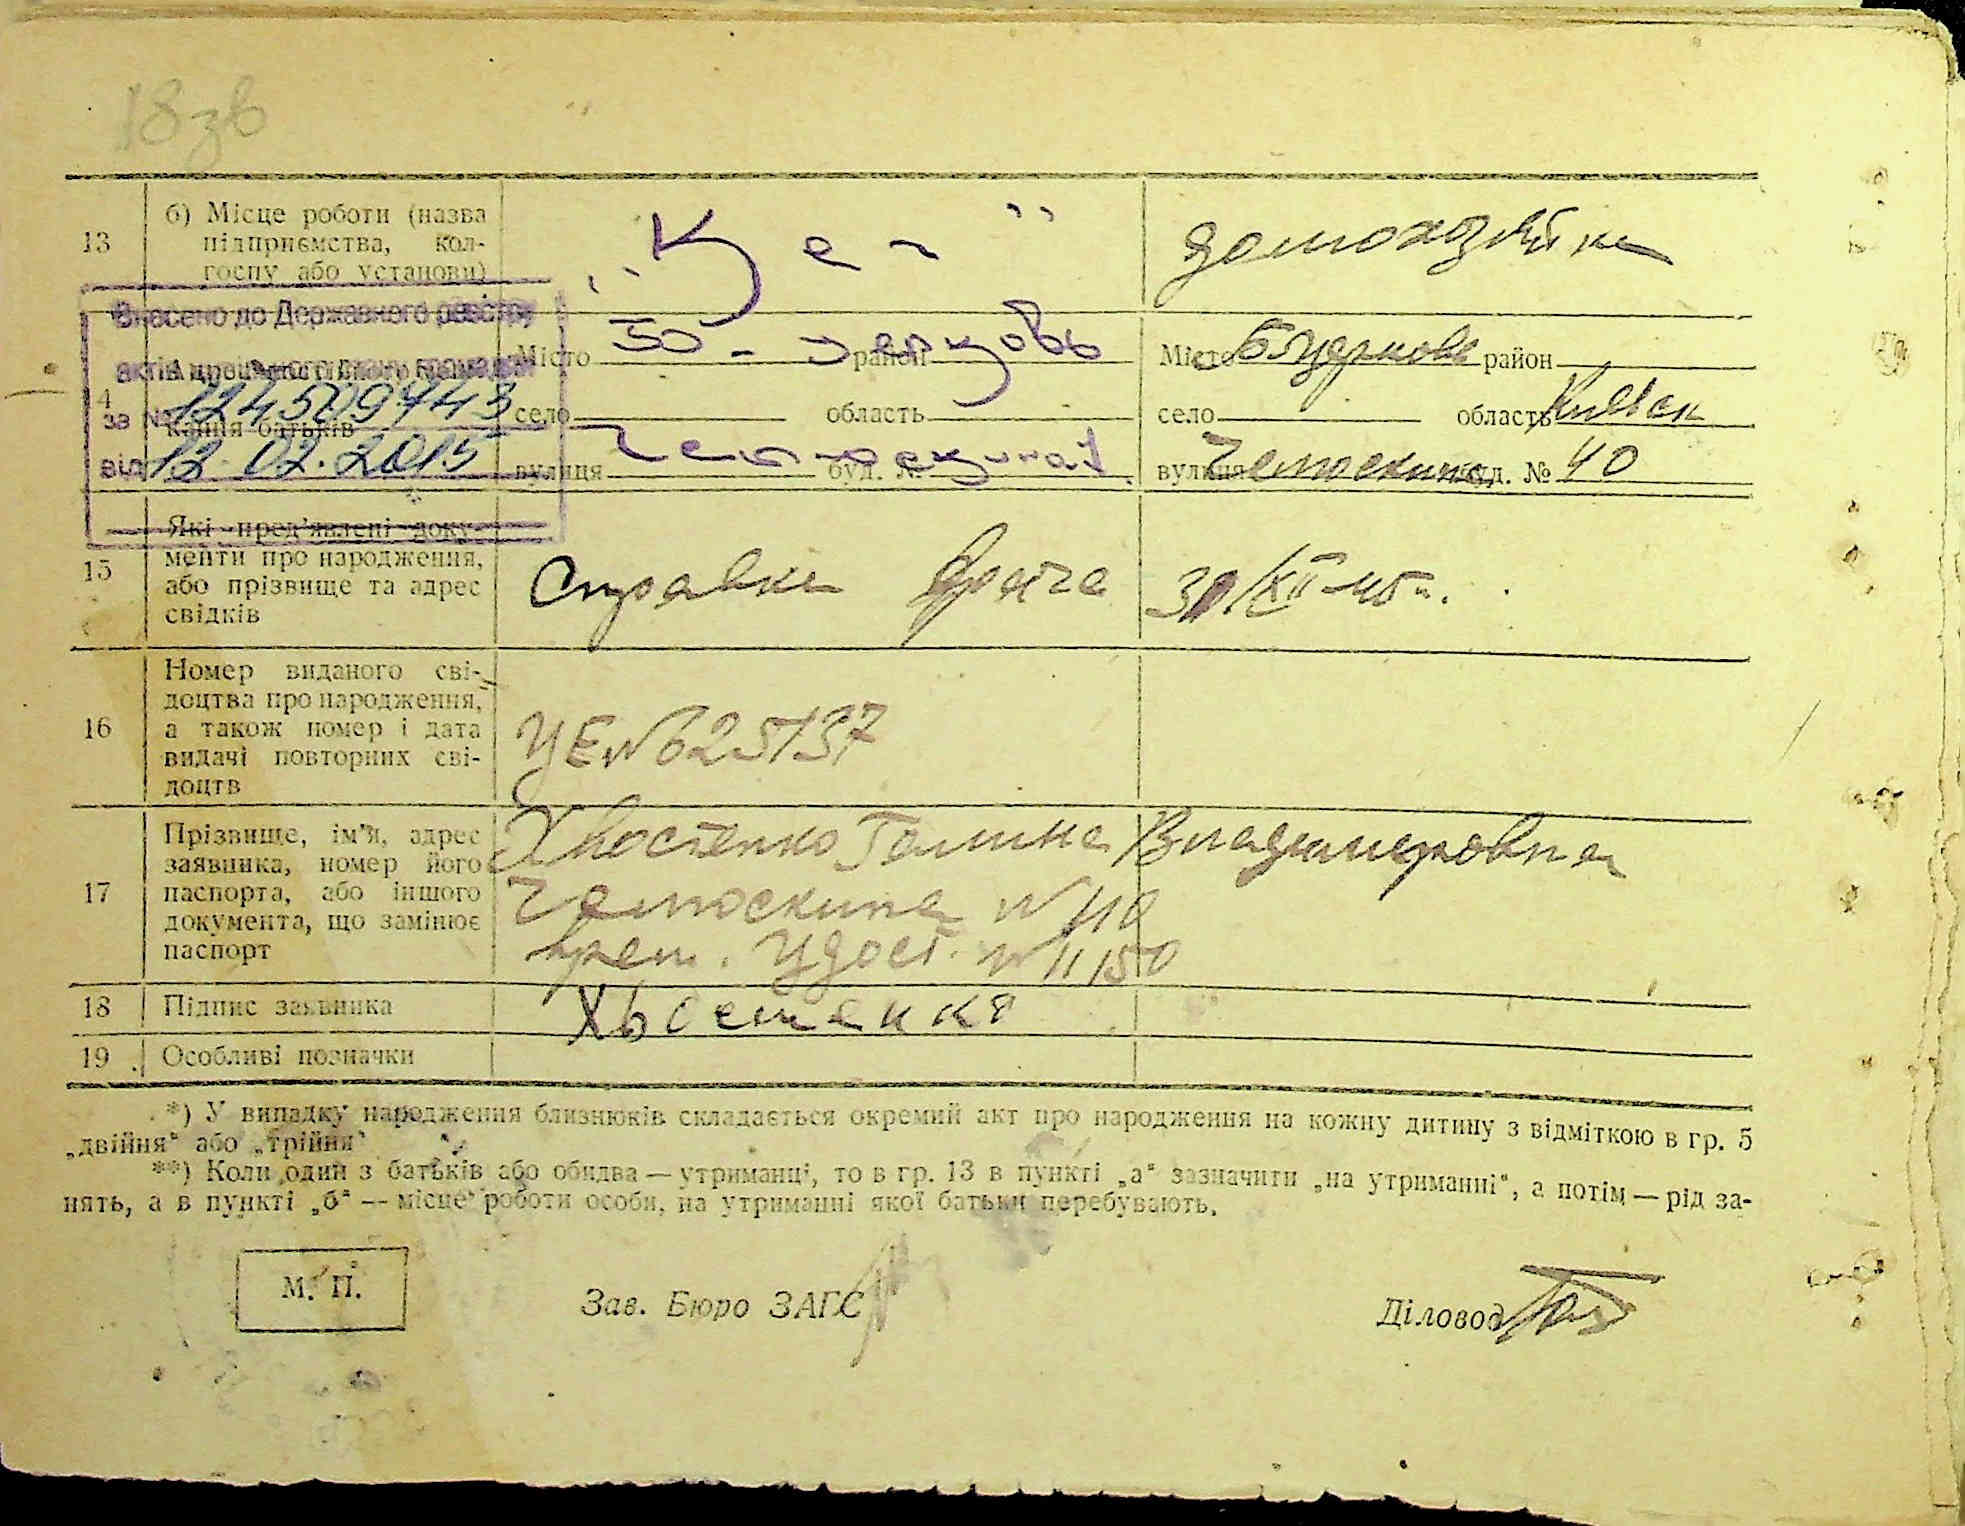 18зв
13 б) Місце роботи (назва підприємства, колгоспу або установи) домохозяйка
Внесено до Державного реєстру
актів цивільного стану громадян
за № 124509443
від 12.02.2015
кання батьків
Місто район Місто Б Церковь район
село область село область Киевск
вулиця буд. № вулиця буд. № 40
15 Які пред'явлені доку-
менти про народження,
або прізвище та адрес
свідків
Справка врача 30/XII-45г.
16 Номер виданого сві-
доцтва про народження,
а також номер і дата
видачі повторних сві-
доцтв
17 Прізвище, ім'я, адрес
заявника, номер його
паспорта, або іншого
документа, що замінює
паспорт
Хвостенко Галина Владимировна
врем. Удост. №11150
18 Підпис заявника Хвостенко
19 Особливі позначки
*) У випадку народження близнюків складається окремий акт про народження на кожну дитину з відміткою в гр. 5
„двійня“ або „трійня“
**) Коли один з батьків або обидва — утриманці, то в гр. 13 в пункті „а“ зазначити „на утриманні“, а потім — рід за-
нять, а в пункті „б“ — місце роботи особи, на утриманні якої батьки перебувають.
М. П. Зав. Бюро ЗАГС Діловод